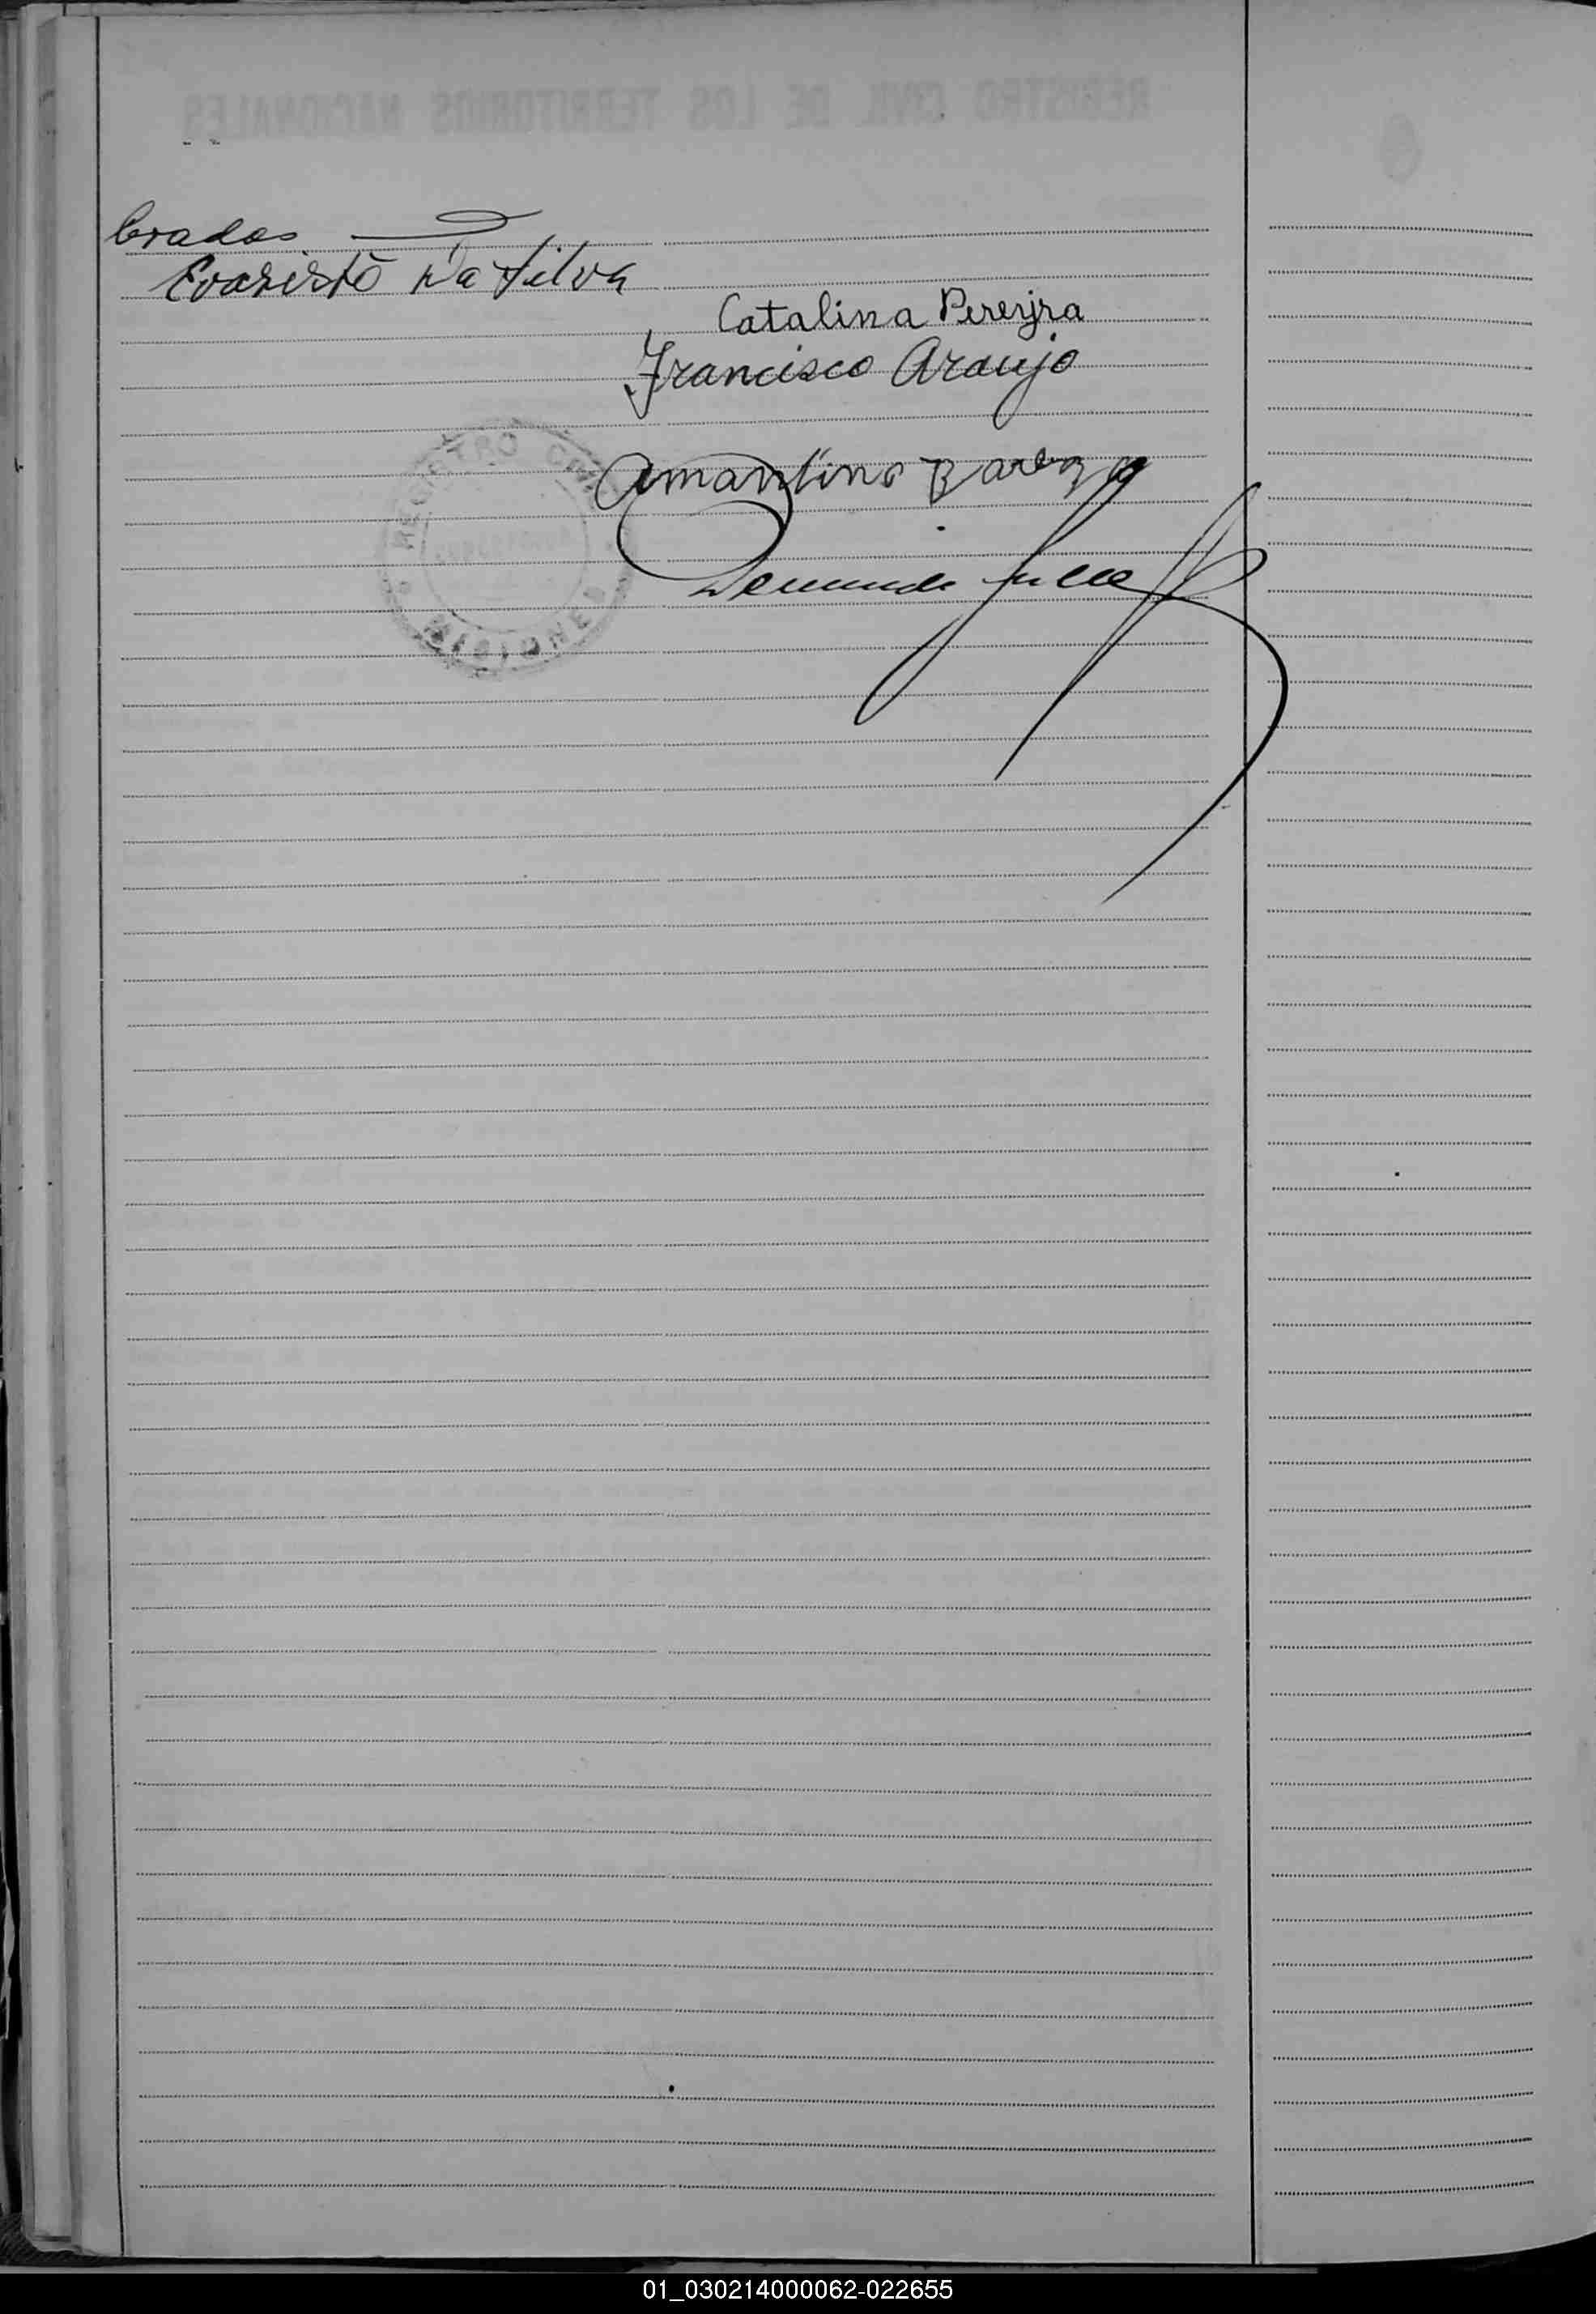 brados
Evaristo Da Silva
Catalina Pereyra
Francisco Araujo
Amantino
REGISTRO CIVIL
MISIONES
01_030214000062-022655